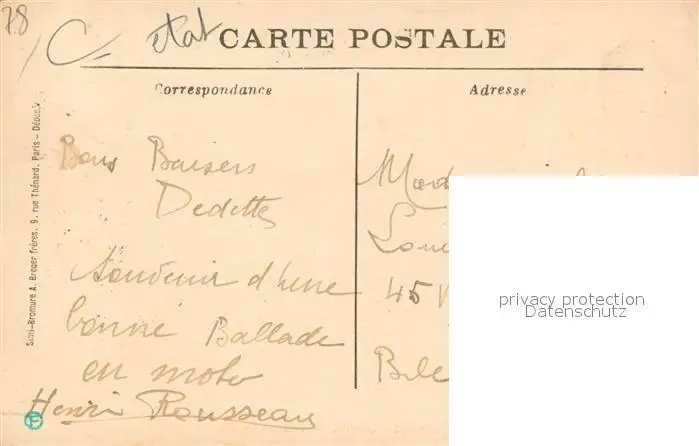 78
état
CARTE POSTALE
Correspondance
Adresse
Simi-Bromure A. Breger frères, 9, rue Thénard, Paris - Déposé
Bons Baisers
Dedette
Souvenir d'une
bonne Ballade
en moto
Henri Rousseau
45
privacy protection
Datenschutz